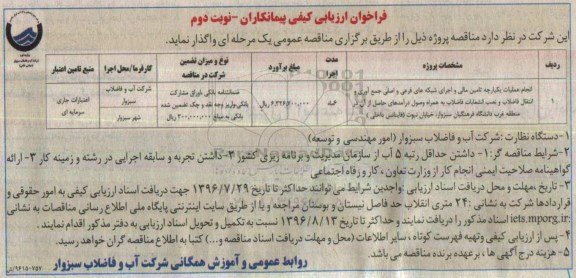 فراخوان ارزیابی کیفی پیمانکاران -نوبت دوم
این شرکت در نظر دارد مناقصه پروژه ذیل را از طریق برگزاری مناقصه عمومی یک مرحله ای واگذار نماید.
ردیف
مشخصات پروژه
مدت اجرا
مبلغ برآورد
نوع و میزان تضمین شرکت در مناقصه
کارفرما/محل اجرا
منبع تامین اعتبار
انجام عملیات یکپارچه تامین مالی و اجرای شبکه های فرعی و اصلی جمع آوری و
انتقال فاضلاب و نصب انشعابات فاضلاب به همراه وصول درآمدهای حاصل از آن در
منطقه غرب دانشگاه فرهنگیان سبزوار، خیابان نبوت (فاینانس داخلی)
ریال
ضمانتنامه بانکی یا اوراق مشارکت
بانکی یا واریز وجه نقد و چک تضمین شده
بانکی به مبلغ ۳۰۰/۰۰۰/۰۰۰ ریال
شرکت آب و فاضلاب
سبزوار
شهر سبزوار
اعتبارات جاری
سرمایه ای
۱-دستگاه نظارت :شرکت آب و فاضلاب سبزوار (امور مهندسی و توسعه)
۲-شرایط مناقصه گر:۱- داشتن حداقل رتبه ۵ آب از سازمان مدیریت و برنامه ریزی کشور ۲-داشتن تجربه و سابقه اجرایی در رشته و زمینه کار ۳- ارائه
گواهینامه صلاحیت ایمنی انجام کار از وزارت تعاون ، کار و رفاه اجتماعی
۳- تاریخ ،مهلت و محل دریافت اسناد ارزیابی :واجدین شرایط می توانند حداکثر تا تاریخ ۱۳۹۶/۷/۲۹ جهت دریافت اسناد ارزیابی کیفی به امور حقوقی و
قراردادها شرکت به نشانی :۲۴ متری انقلاب حد فاصل نیستان و بوستان مراجعه و یا از طریق سایت اینترنتی پایگاه ملی اطلاع رسانی مناقصات به نشانی
iets.mporg.ir اسناد مذکور را دریافت نمایند و حداکثر تا تاریخ ۱۳۹۶/۸/۱۳ نسبت به تکمیل و تحویل اسناد ارزیابی به دفتر مذکور اقدام نمایند .
۴- پس از ارزیابی کیفی وتهیه فهرست کوتاه ، سایر اطلاعات (محل و مهلت دریافت اسناد مناقصه و...) کتبا به اطلاع مناقصه گران خواهد رسید.
۵- هزینه درج آگهی ها ، برعهده برنده مناقصه می باشد.
روابط عمومی و آموزش همگانی شرکت آب و فاضلاب سبزوار